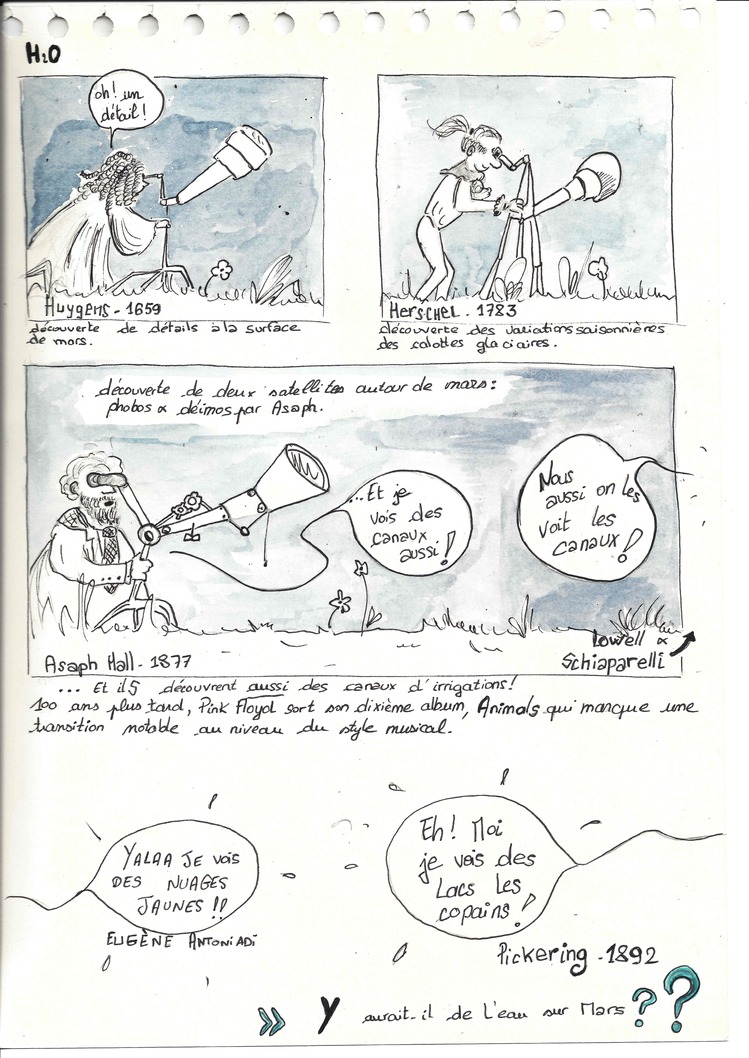 H2O
oh! un
détail!
Huygens - 1659
découverte de détails à la surface
de mars.
Herschel - 1783
découverte des variations saisonnières
des calottes glaciaires.
découverte de deux satellites autour de mars:
phobos & déimos par Asaph.
...Et je
vois des
canaux
aussi!
Nous
aussi on les
voit les
canaux!
Asaph Hall - 1877
Lowell &
Schiaparelli
... Et ils découvrent aussi des canaux d'irrigations!
100 ans plus tard, Pink Floyd sort son dixième album, Animals qui marque une
transition notable au niveau du style musical.
YALAA JE VOIS
DES NUAGES
JAUNES !!
EUGÈNE ANTONIADI
Eh! Moi
je vois des
Lacs les
copains!
Pickering - 1892
» Y aurait-il de l'eau sur Mars ??